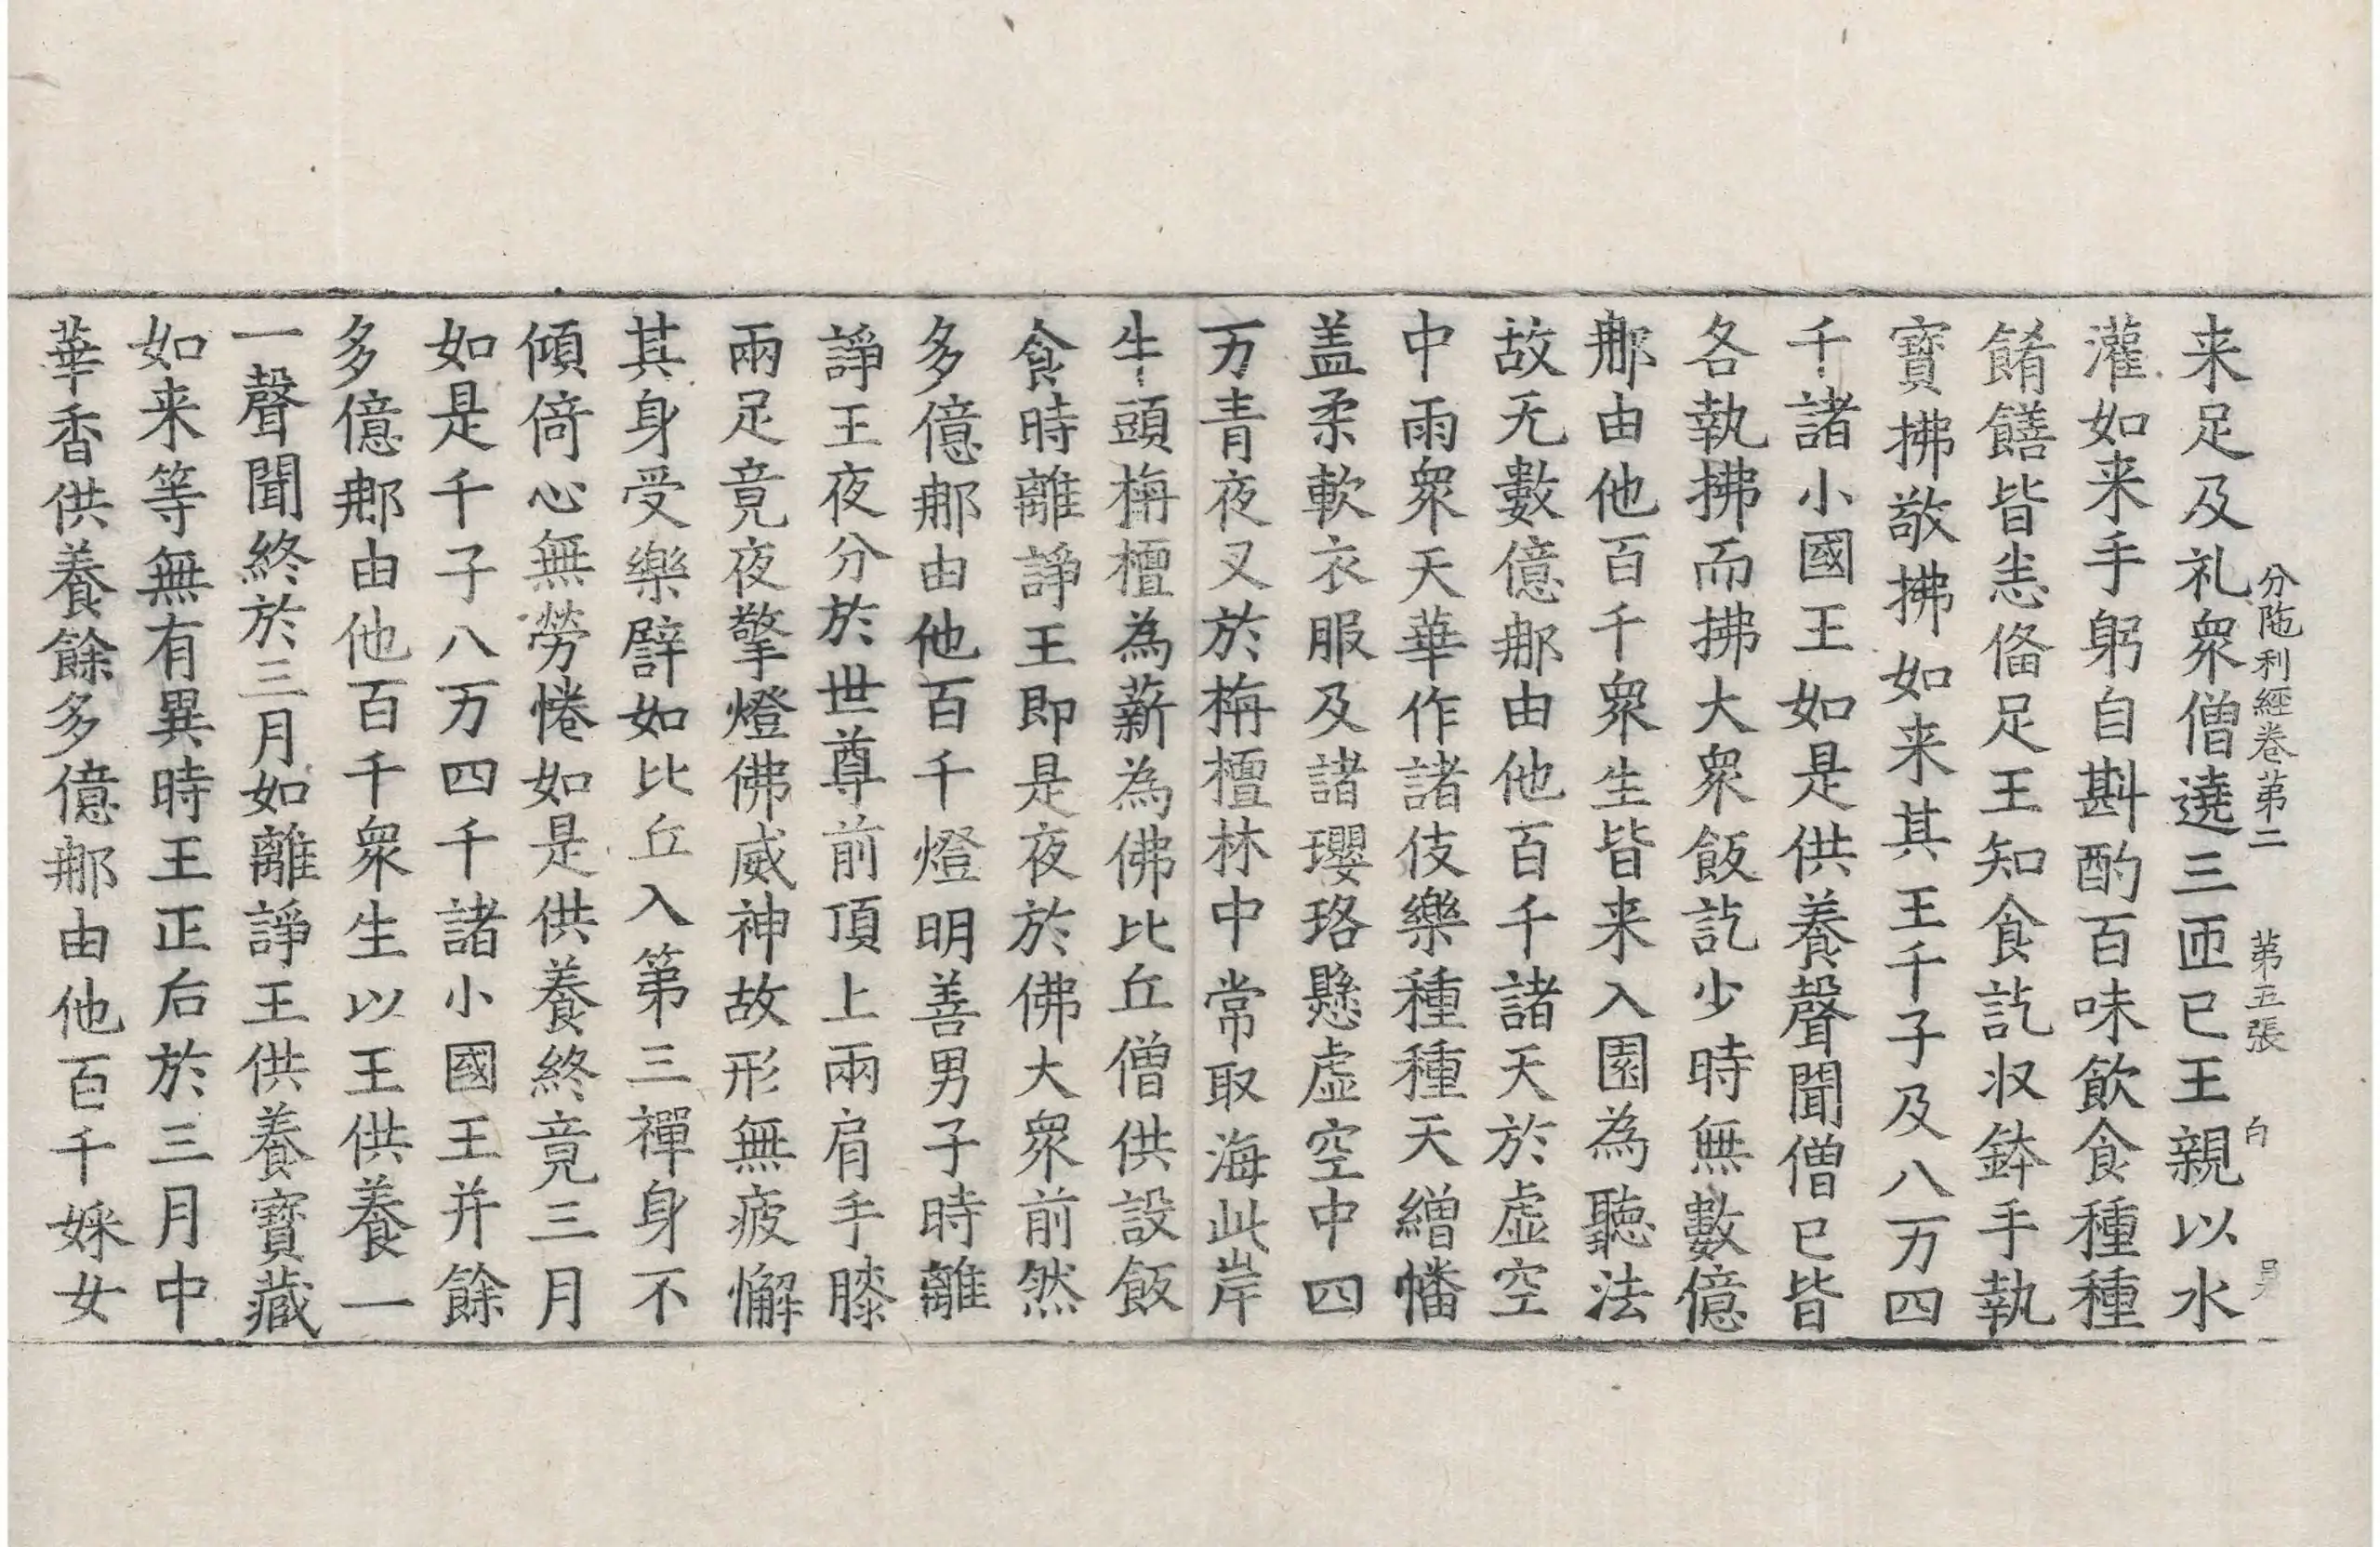 分陁利經卷第二　第五張　白
来足及礼衆僧遶三匝已王親以水
灌如来手躬自斟酌百味飲食種種
餚饍皆悉俻足王知食訖収鉢手執
寶拂敬拂如来其王千子及八万四
千諸小國王如是供養聲聞僧已皆
各執拂而拂大衆飯訖少時無數億
那由他百千衆生皆来入園為聽法
故无數億那由他百千諸天於虛空
中雨衆天華作諸伎樂種種天繒幡
盖柔軟衣服及諸瓔珞懸虛空中四
万青夜叉於栴檀林中常取海此岸
牛頭栴檀為薪為佛比丘僧供設飯
食時離諍王即是夜於佛大衆前然
多億那由他百千燈明善男子時離
諍王夜分於世尊前頂上兩肩手膝
兩足竟夜擎燈佛威神故形無疲懈
其身受樂譬如比丘入第三禪身不
傾倚心無勞惓如是供養終竟三月
如是千子八万四千諸小國王并餘
多億那由他百千衆生以王供養一
一聲聞終於三月如離諍王供養寶藏
如来等無有異時王正后於三月中
華香供養餘多億那由他百千婇女